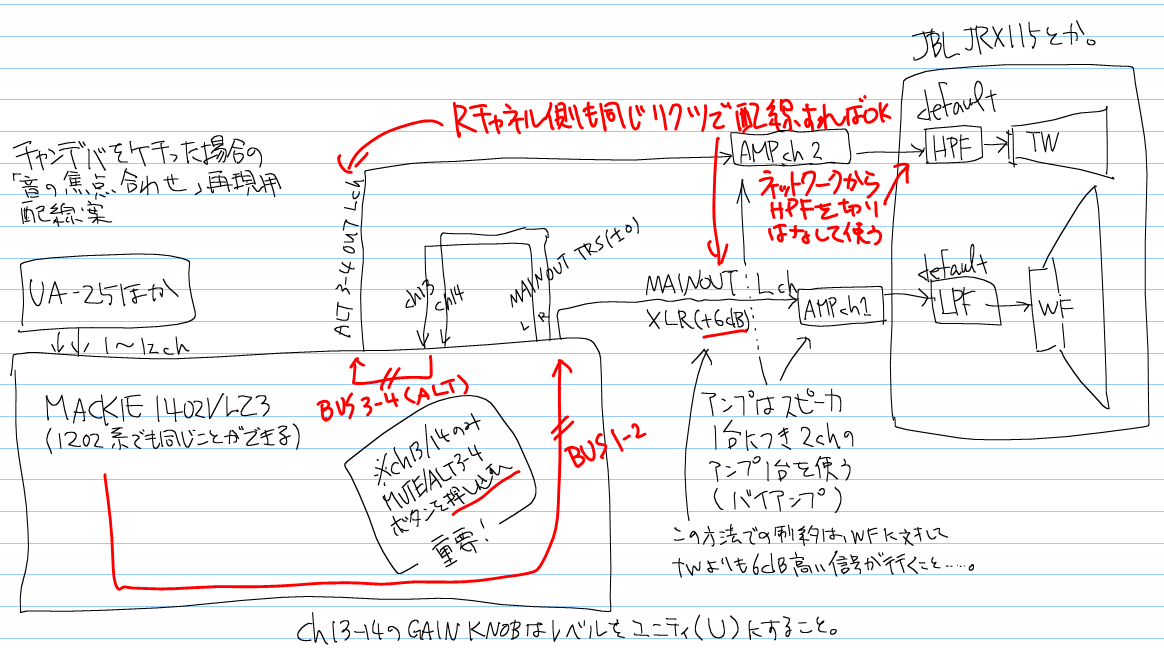 JBL JRX115とか。
チャンデバをケチった場合の
「音の焦点合わせ」再現用
配線案
Rチャネル側も同じリクツで配線すればOK
default
AMP ch2
HPF
TW
ネットワークから
HPFを切り
はなして使う
ALT 3-4 OUT Lch
ch13
ch14
MAINOUT TRS(±0)
L R
MAINOUT Lch
XLR(+6dB)
AMP ch1
default
LPF
WF
UA-25ほか
1~12ch
BUS 3-4 (ALT)
BUS 1-2
MACKIE 1402VLZ3
(1202系でも同じことができる)
※ch13/14のみ
MUTE/ALT3-4
ボタンを押し込む
重要!
アンプはスピーカ
1台につき2chの
アンプ1台を使う
(バイアンプ)
この方法での制約は、WFに対して
TWよりも6dB高い信号が行くこと……。
ch13-14のGAIN KNOBはレベルをユニティ(U)にすること。